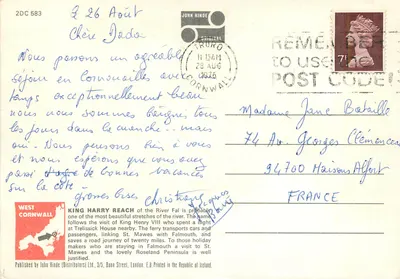 2DC 583
£ 26 Août
Chère Dada
JOHN HINDE
Nous passons un agréable
séjour en Cornouailles avec
temps exceptionnellement beau
nous nous sommes baignés tous
les jours dans la manche.. mais
oui. Nous pensons bien à vous
et nous espérons que vous avez
passé de bonnes vacances
sur la côte
grosses bises Christiane
TRURO
11 15AM
28 AUG
1976
CORNWALL
REMEMBER
to use the
POST CODE!
7P
Madame Jane Bataille
74 Av. Georges Clemenceau
94700 Maisons Alfort
FRANCE
WEST
CORNWALL
KING HARRY BEACH of the River Fal is
one of the most beautiful stretches of the river. The
follows the visit of King Henry VIII who spent a night
at Trelissick House nearby. The ferry transports cars and
passengers, linking St. Mawes with Falmouth, and
saves a road journey of twenty miles. To those holiday
makers who are staying in Falmouth a visit to St.
Mawes and the lovely Roseland Peninsula is well
justified.
Published by John Hinde (Distributors) Ltd., 3/5, Dane Street, London. Printed in the Republic of Ireland